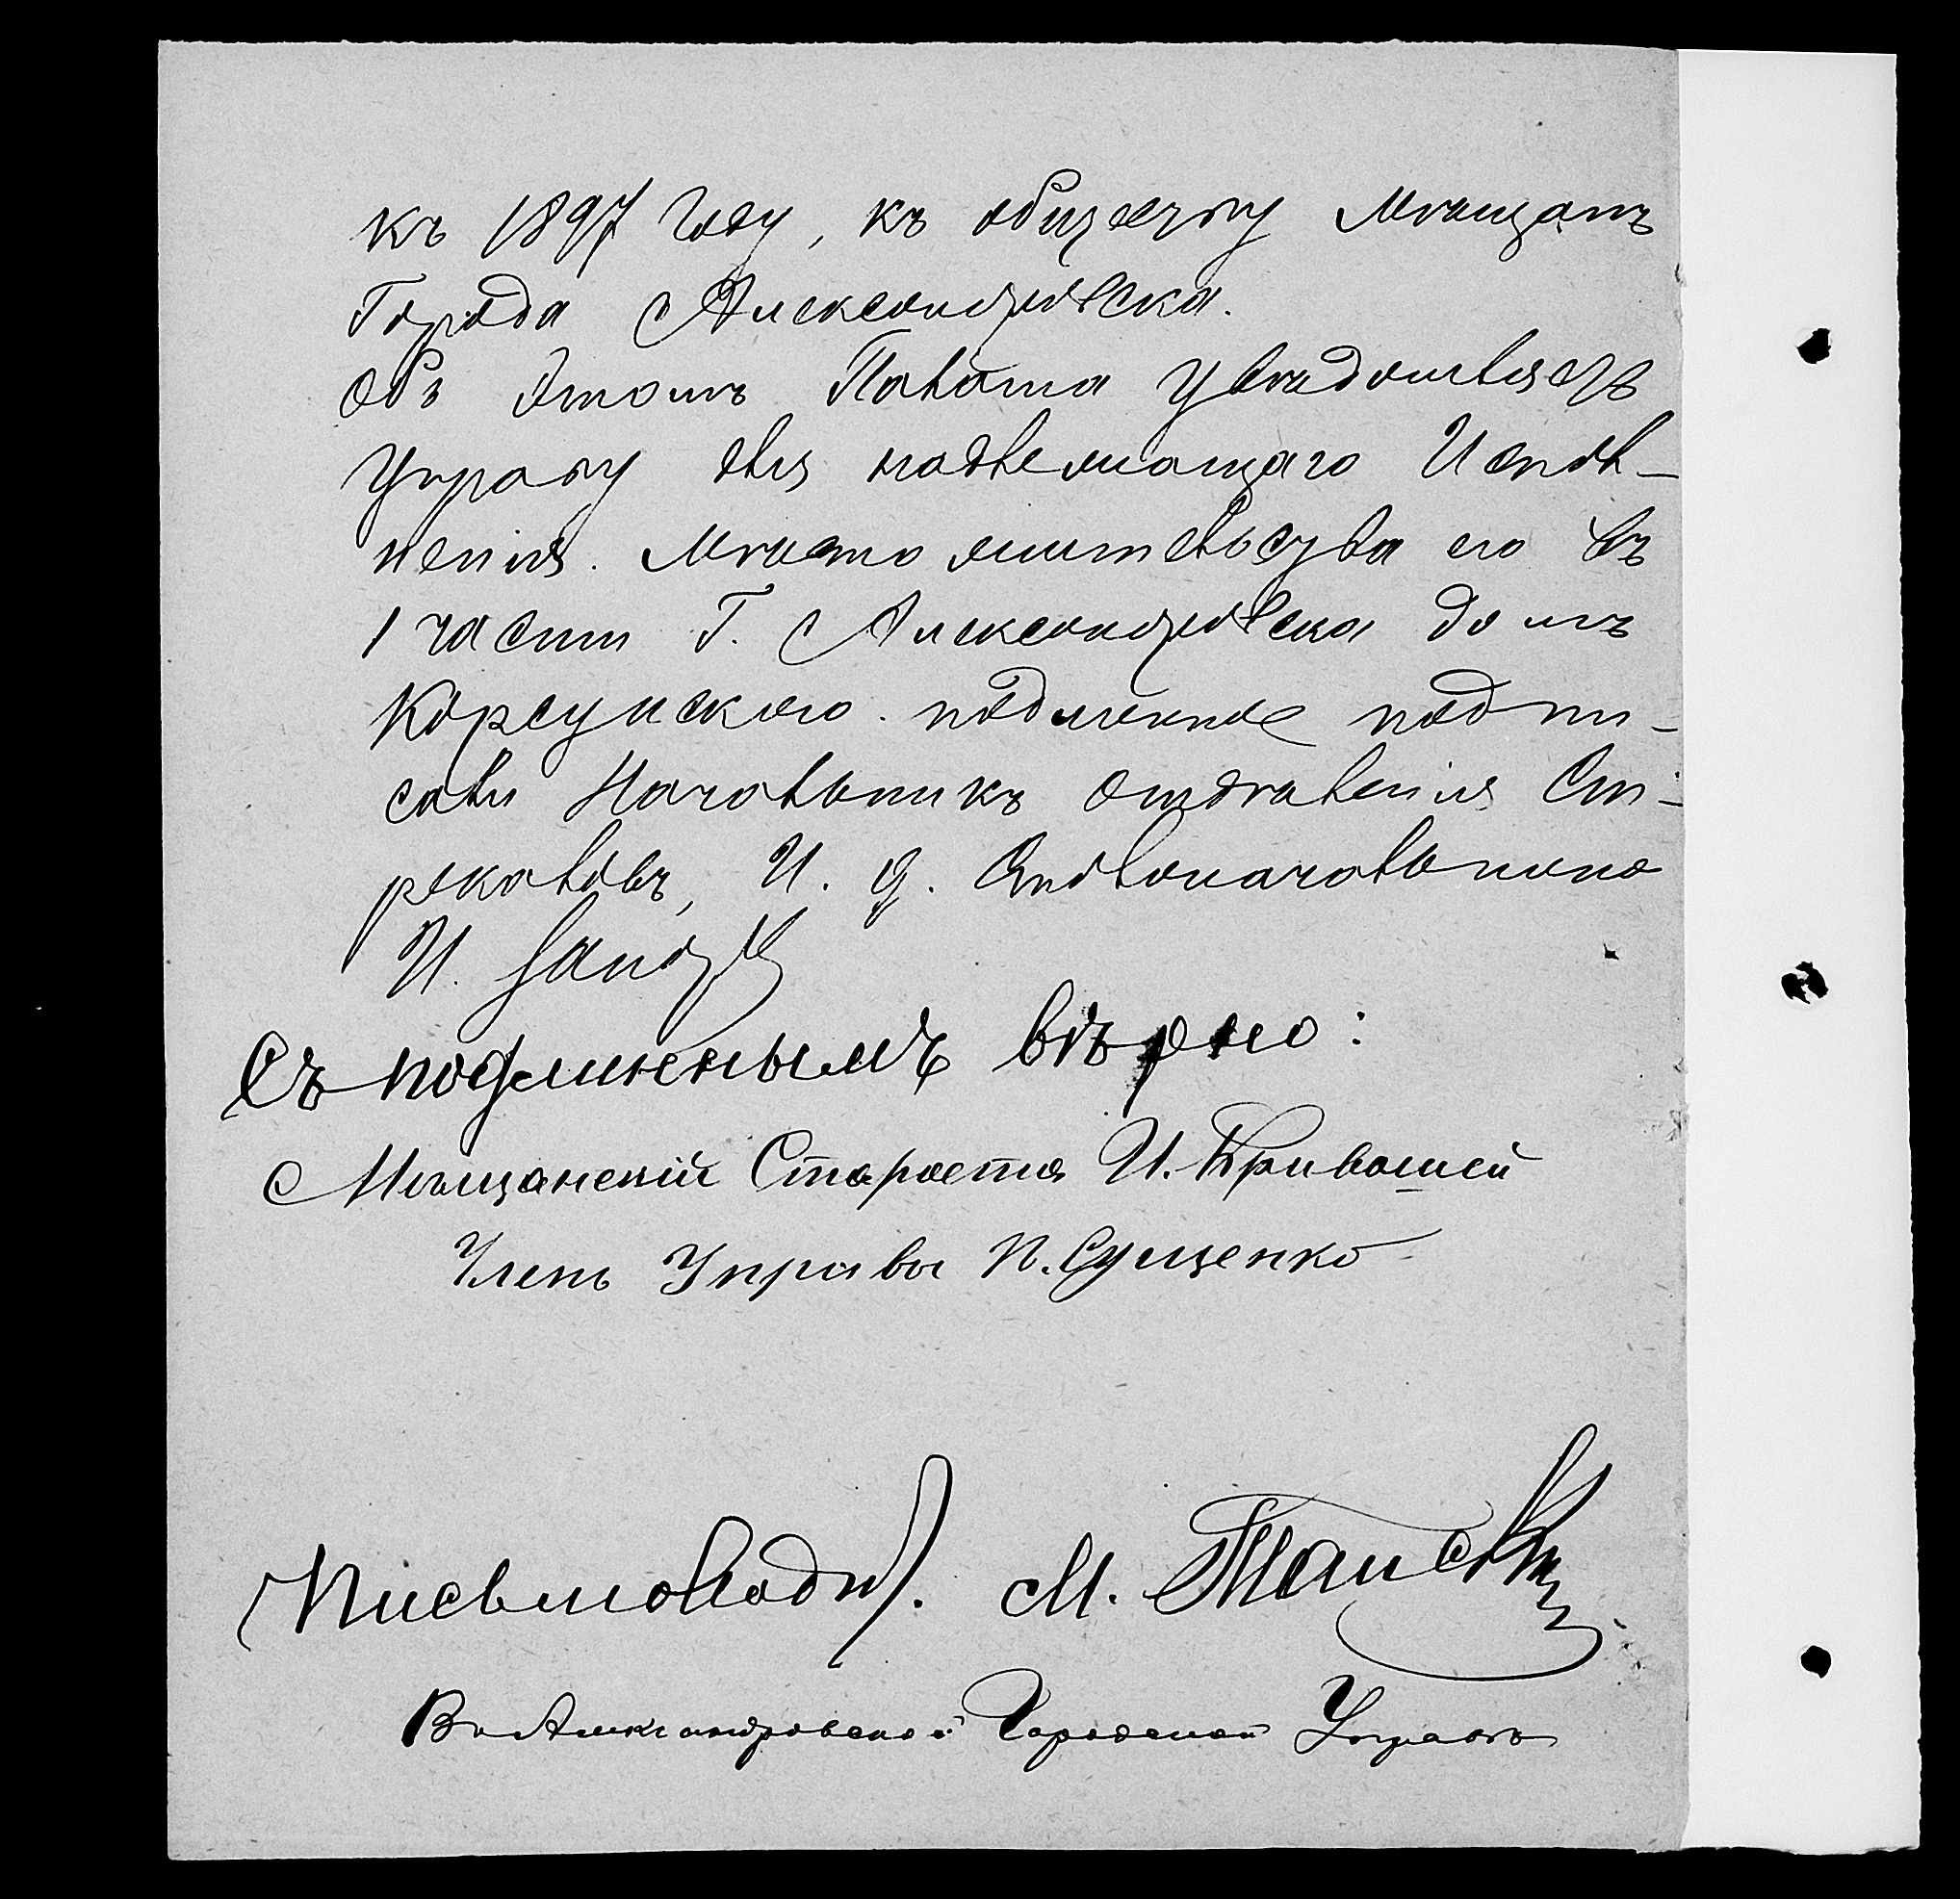 къ 1897 году, къ обществу мѣщанъ
Города Александровска.
Объ этомъ Палата увѣдомляетъ
Управу для надлежащаго Испол-
ненія. Мѣсто жительства его въ
1 части Г. Александровска домъ
Корсунскаго. подлинное подпи-
сали Начальникъ отдѣленія Сп-
рекаловъ, И. д. Столоначальника
И.
Съ подлиннымъ вѣрно:
Мѣщанскій Староста И. Кривошей
Членъ Управы П. Сущенко
Письмовод. М.
Въ Александровской Городской Управѣ